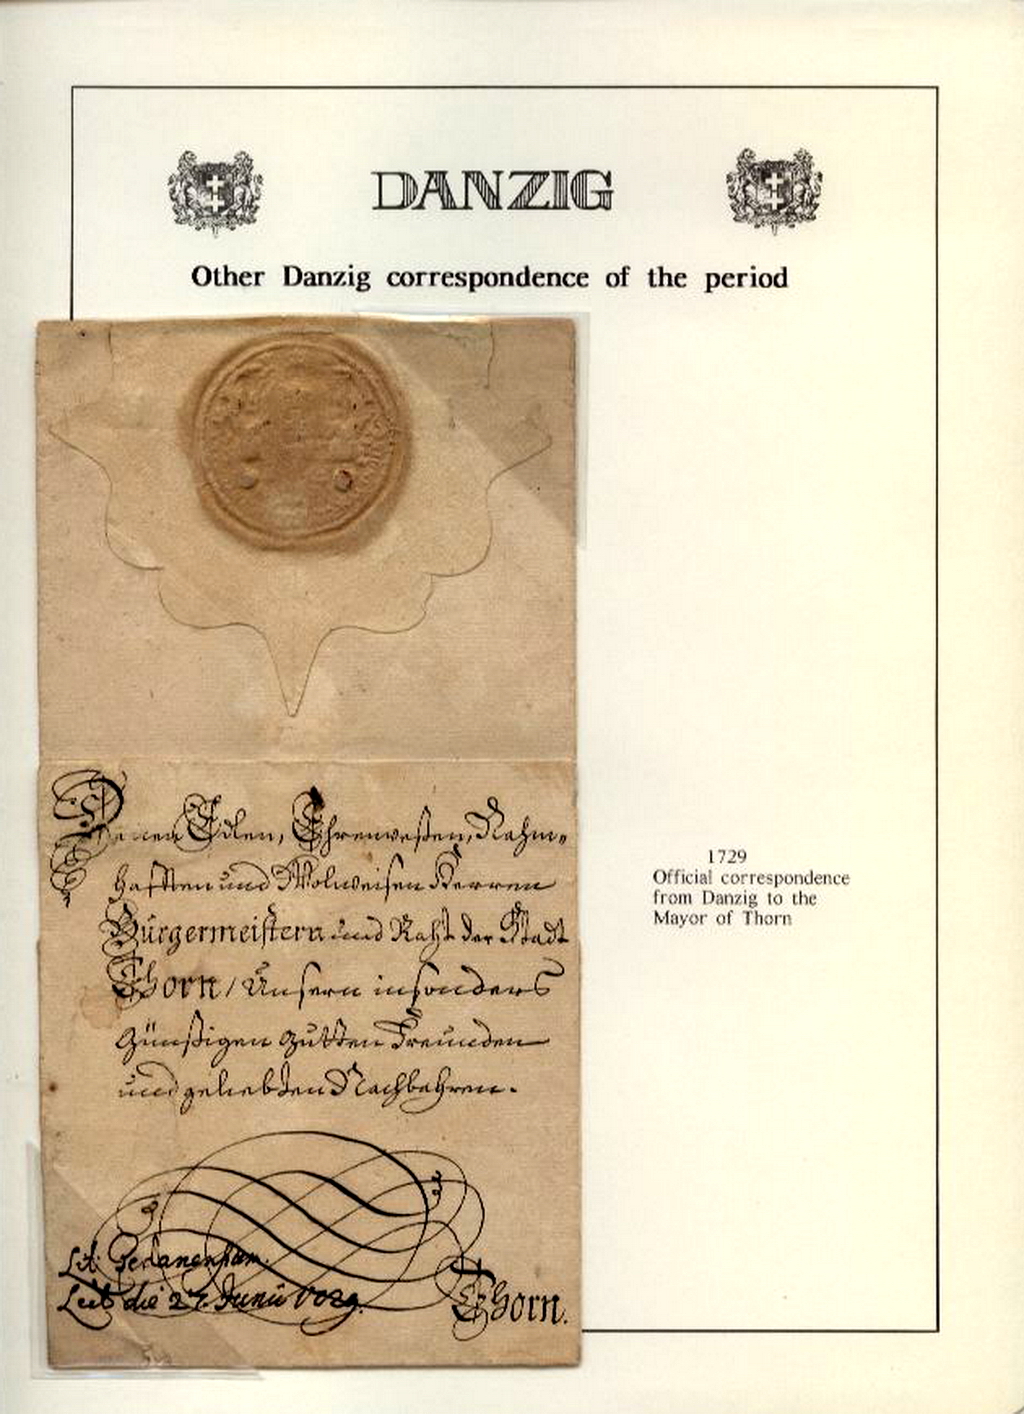 DANZIG
Other Danzig correspondence of the period
Denen Edlen, Ehrenvesten, Nahm-
hafften und Wolweisen Herren
Bürgermeistern und Raht der Stadt
Thorn / Unsern insonders
günstigen gutten Freunden
und geliebten Nachbahren.
Lit. Gedanensium
Lect. die 27. Junii
Thorn.
1729
Official correspondence
from Danzig to the
Mayor of Thorn